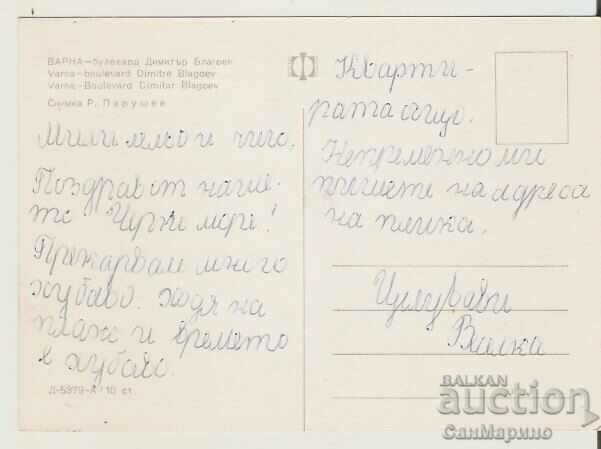 ВАРНА – булевард Димитър Благоев
Varna – boulevard Dimitre Blagoev
Varna – Boulevard Dimitar Blagoev
Снимка Р. Парушев
Мили лельо и чичо,
Поздрав от наше-
то "Черно море"!
Прекарвам много
хубаво. Ходя на
плаж и времето
е хубаво.
Д-5379-А / 10 ст.
Кварти-
рата също.
Непременно ми
пишете на адреса
на плика.
Целувки
Вилка
BALKAN
auction
СанМарино